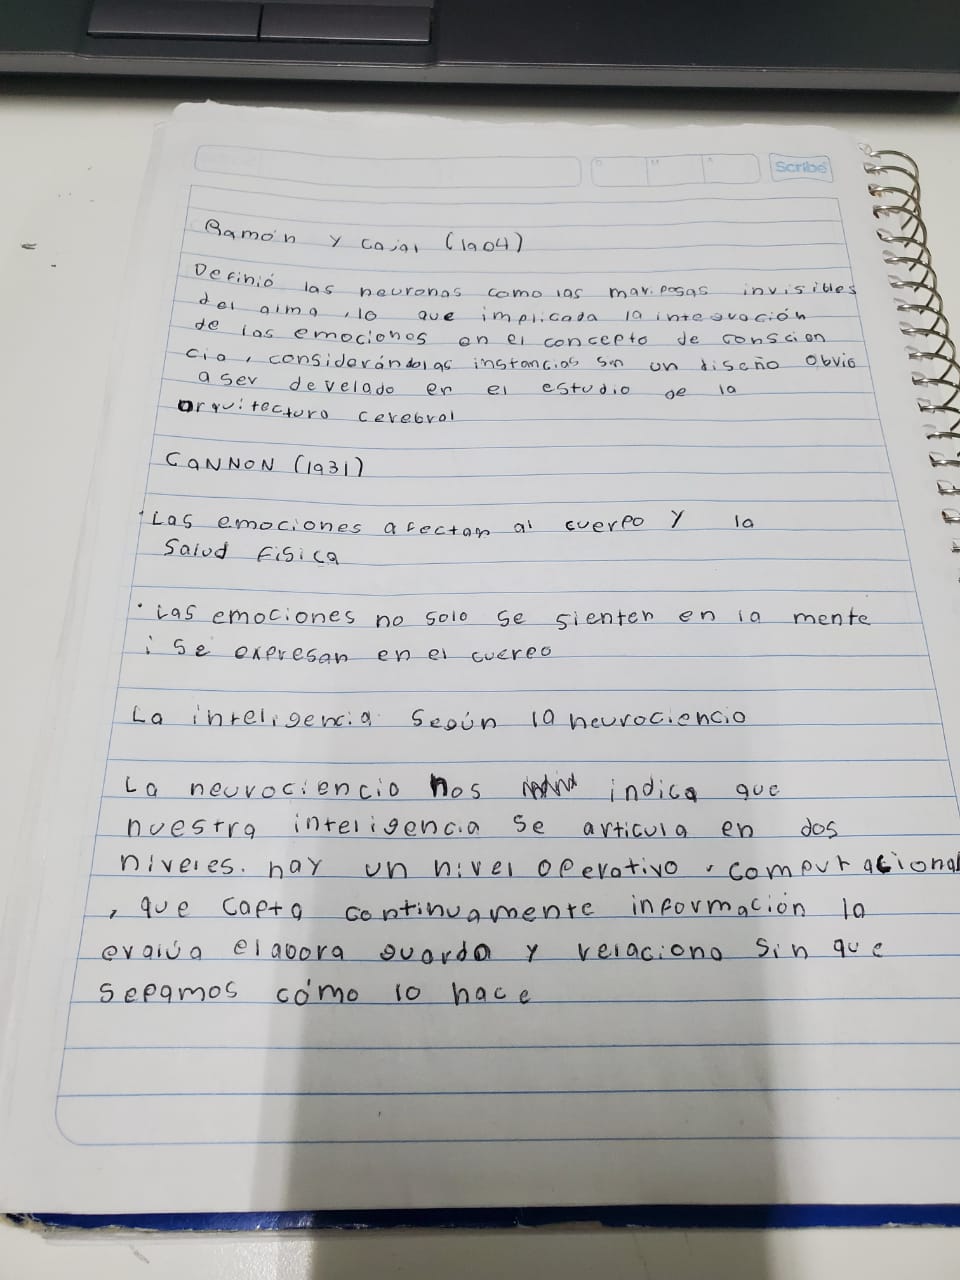 Scribe
D M A
Ramón y Cajal (1904)
Definió las neuronas como las mariposas invisibles
del alma, lo que implicada la integración
de las emociones en el concepto de conscion
cia, considerándolas instancias sin un diseño obvio
a ser develado en el estudio de la
arquitectura cerebral
CANNON (1931)
· Las emociones afectan al cuerpo y la
Salud Física
· Las emociones no solo se sienten en la mente
¡ se expresan en el cuerpo
La inteligencia según la neurociencia
La neurociencia nos indica que
nuestra inteligencia se articula en dos
niveles. hay un nivel operativo, computacional
, que capta continuamente información la
evalúa elabora guarda y relaciona sin que
sepamos cómo lo hace